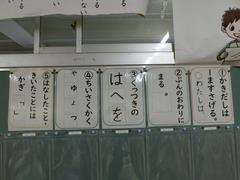 ①かきだしは
一ますさげる。
○わたしは
②ぶんのおわりに
まる。
③くっつきの
は へ を
④ちいさくかく
や ゆ ょ つ
⑤はなしたこと、
きいたことには
かぎ「 」